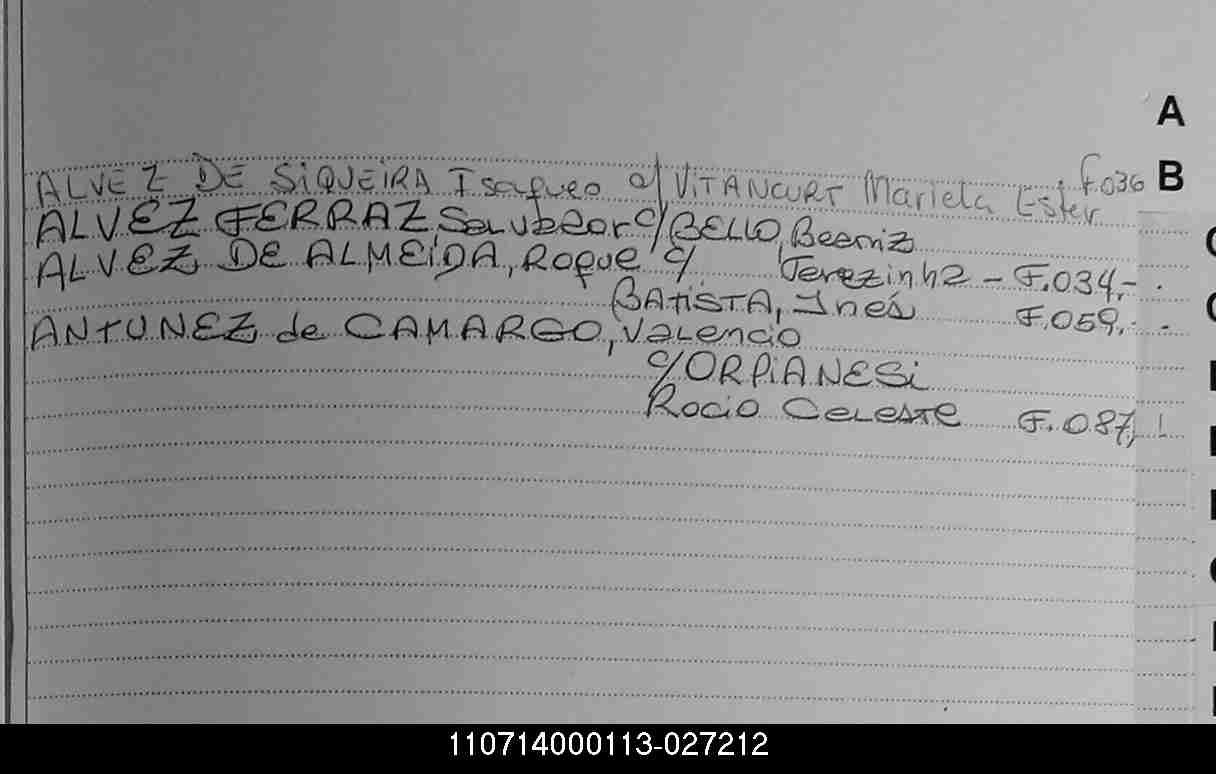 A
F036 B
ALVEZ DE SIQUEIRA Isaqueo c/ VITANCURT Mariela Ester
ALVEZ FERRAZ Salvador c/ BELLO, Beatriz
Terezinha - F.034,-.
ALVEZ DE ALMEIDA, Roque c/
BATISTA, Inés F.059.-.
ANTUNEZ de CAMARGO, Valencio
c/ ORPIANESI
Rocio Celeste F.087,!
110714000113-027212